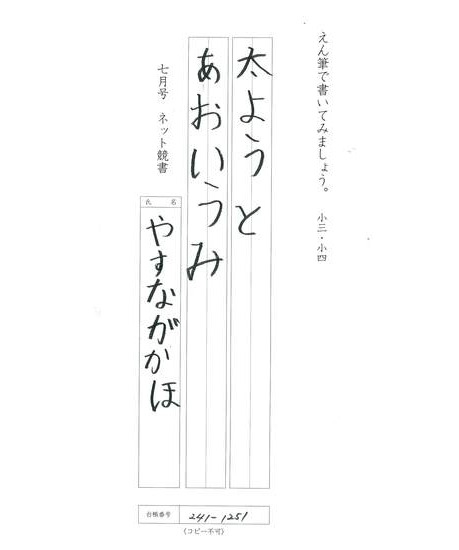 えん筆で書いてみましょう。 小三・小四
太ようと
あおいうみ
七月号 ネット競書
氏名
やすながかほ
台帳番号 241-1251
(コピー不可)